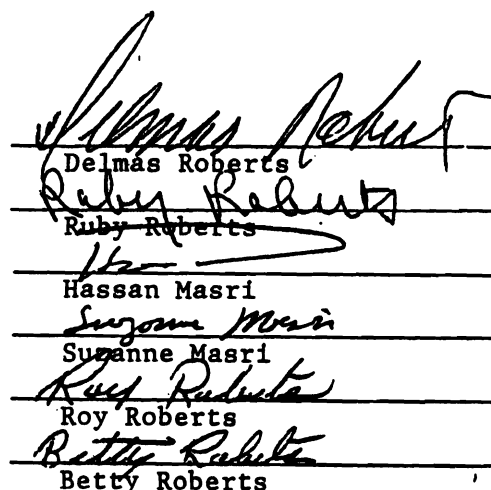 Delmas Roberts
Delmas Roberts
Ruby Roberts
Ruby Roberts
Hassan Masri
Suzanne Masri
Suzanne Masri
Roy Roberts
Roy Roberts
Betty Roberts
Betty Roberts